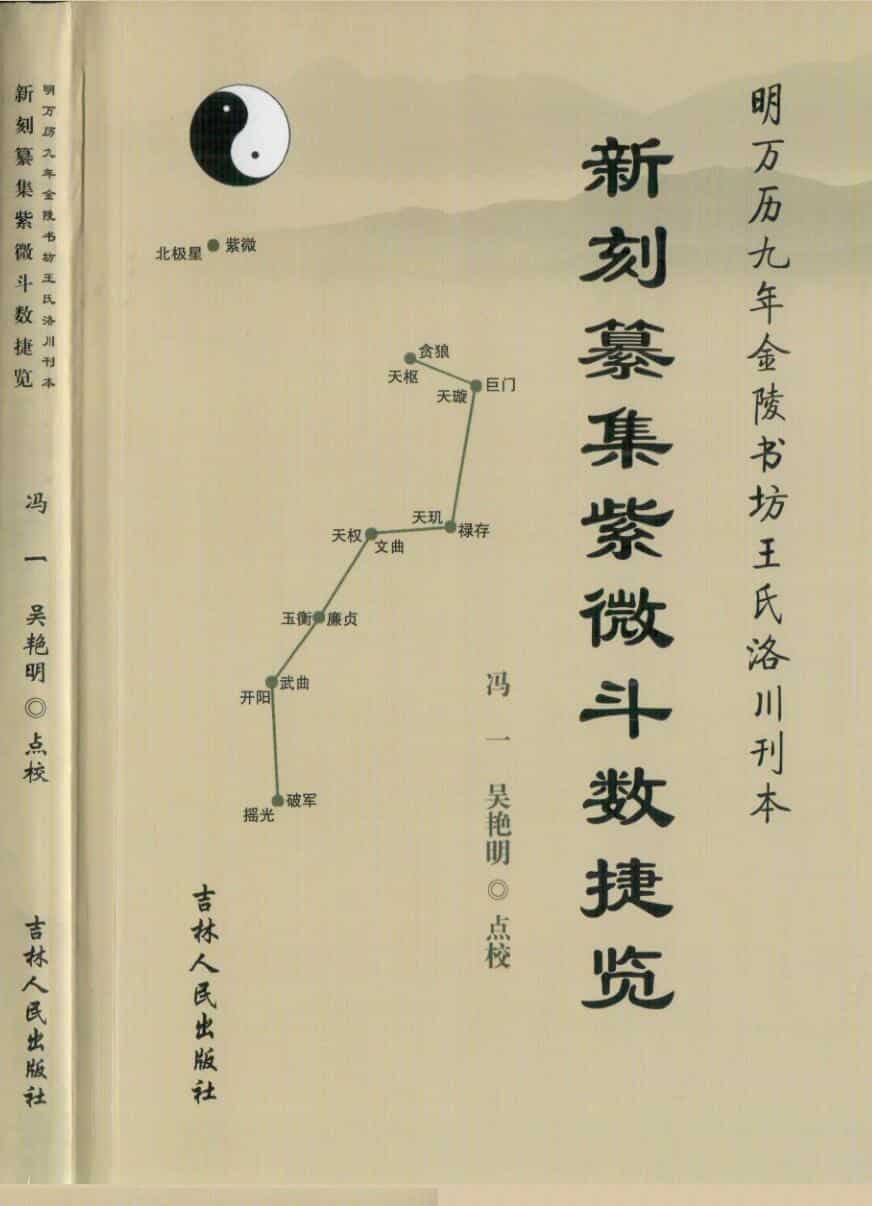 明万历九年金陵书坊王氏洛川刊本
新刻纂集紫微斗数捷览
冯一 吴艳明◎点校
吉林人民出版社
北极星 紫微
贪狼
天枢
天璇 巨门
天玑 禄存
天权 文曲
玉衡 廉贞
开阳 武曲
摇光 破军
明万历九年金陵书坊王氏洛川刊本
新刻纂集紫微斗数捷览
冯一 吴艳明◎点校
吉林人民出版社